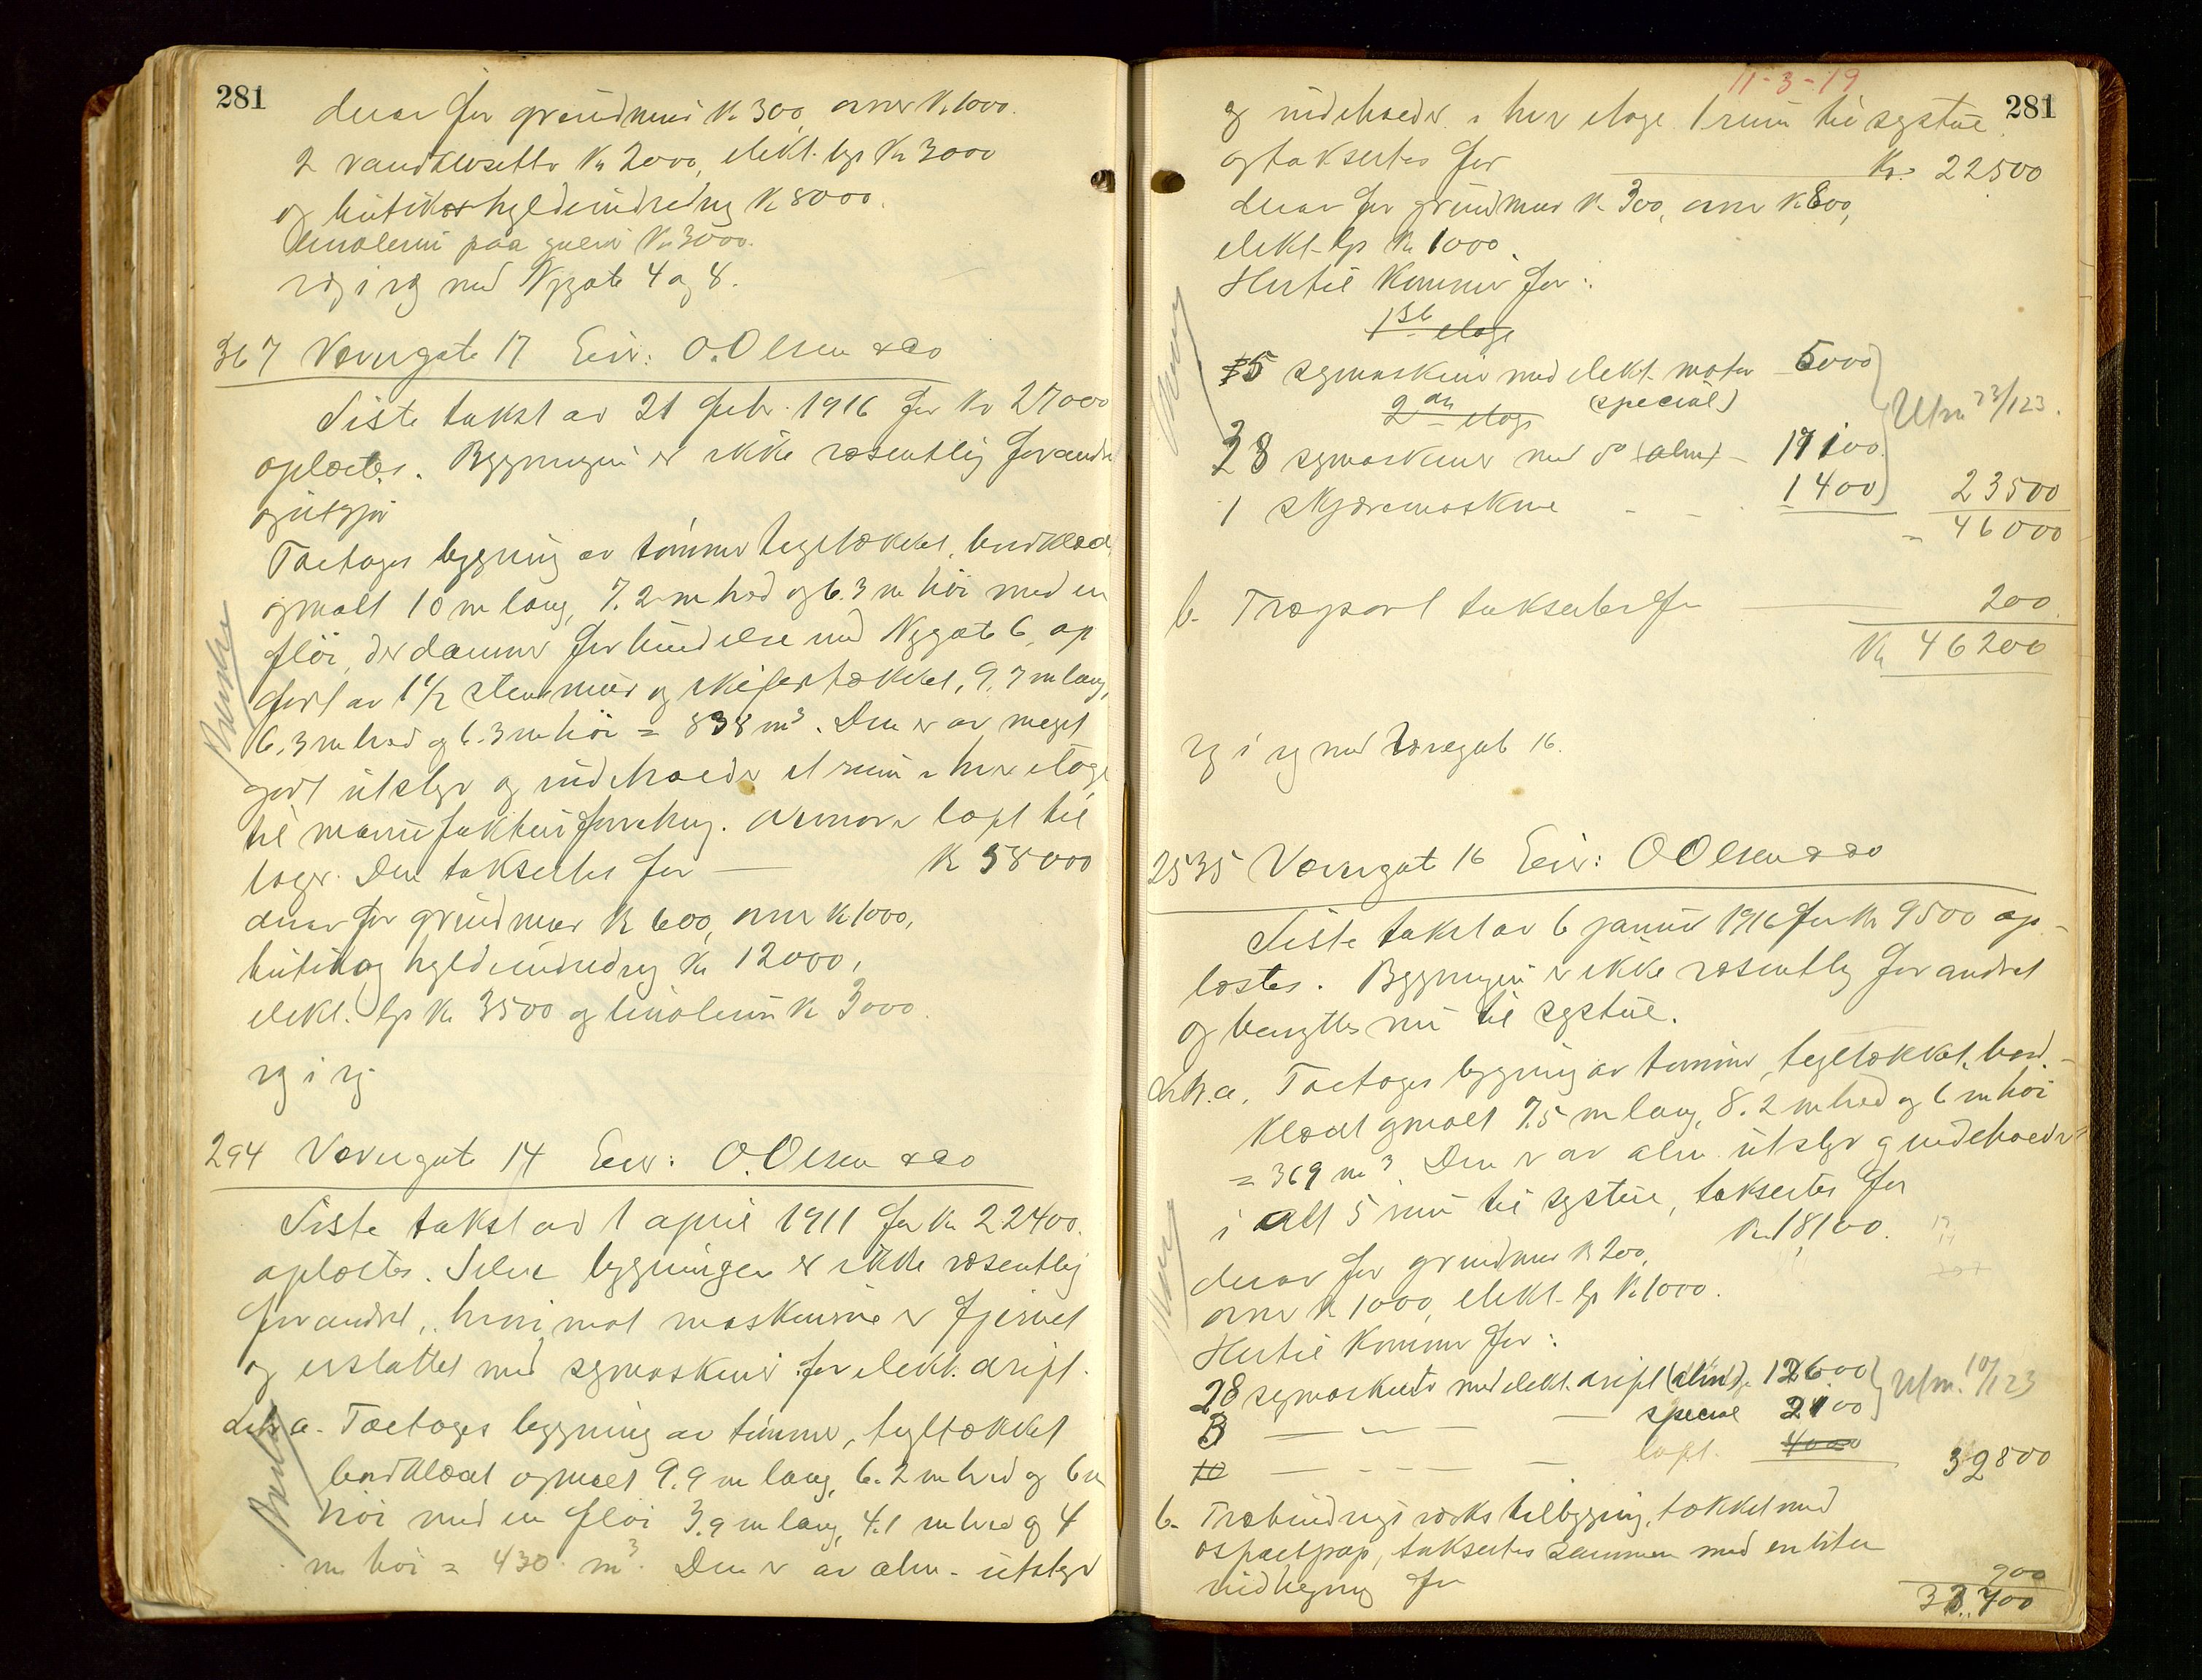 281
derav for grundmur Kr 300, ovner Kr. 1000.
2 vandklosetter Kr 2000, elekt. lys Kr 3000
og butikshyldeindredng Kr 8000.
Linoleum paa gulvene Kr 3000.
ryg i ryg med Nygate 4 og 8.
367 Vævergate 17 Eier: O. Olsen & Co
Siste takst av 21 febr. 1916 for Kr 27000
oplæstes. Bygningen er ikke væsentlig forandret
og utgjør
Toetages bygning av tømmer teglstækket, bordklæd
og malt 10 m lang, 7.2 m bred og 6.3 m høi med en
fløi, der danner forbindelse med Nygate 6, op
ført av 1 1/2 stens mur og skifertækket, 9.7 m lang,
6.3 m bred og 6.3 m høi = 838 m³. Den er av meget
godt utstyr og indeholder et rum i hver etage
til manufakturforretng. Ovenover loft til
lager. Den takseres for — Kr 58000
derav for grundmur Kr 600, ovner Kr 1000,
butik og hyldeindredng Kr 12000,
elekt. lys Kr 3500 og linoleum Kr 3000.
ryg i ryg
294 Vævergate 14 Eier: O. Olsen & Co
Siste takst av 1 april 1911 for Kr 22400.
oplæstes. Selve bygningen er ikke væsentlig
forandret, hvorimot maskinerne er fjernet
og erstattet med symaskiner for elekt. drift.
Litr a. Toetages bygning av tømmer, tegltækket
bordklædt og malt 9.9 m lang, 6.2 m bred og 6 m
høi med en fløi 3.9 m lang, 4.1 m bred og 4
m høi = 430 m³. Den er av alm. utstyr
11-3-19
281
og indeholder i hver etage 1 rum til systue
og takseres for — Kr. 22500
derav for grundmur Kr 300, ovner Kr 800,
elekt. lys Kr 1000.
Hertil kommer for:
1ste etage
5 symaskiner med elekt. motor 5000
(special)
2den etage
28 symaskiner med do (alm) - 17100
Utm 23/1 23.
1 skjæremaskine - - 1400 23500
= 46000
b. Træport takseres for — 200
Kr 46200
ryg i ryg med Vævergate 16.
2535 Vævergate 16 Eier: O Olsen & Co
Siste takst av 6 januar 1916 for Kr 9500 op-
læstes. Bygningen er ikke væsentlig forandret
og benyttes nu til systue.
Litr. a. Toetages bygning av tømmer, tegltækket, bord-
klædt og malt 7.5 m lang, 8.2 m bred og 6 m høi
= 369 m³. Den er av alm. utstyr og indeholder
i alt 5 rum til systue, takseres for
Kr. 18,100.
derav for grundmur Kr 200,
ovner Kr 1000, elekt. lys Kr 1000.
Hertil kommer for:
28 symaskiner med elekt. drift (alm) 12600
Utm. 10/1 23
3 — — — special 2100
10 — — — — loft. 4000 32800
b. Træbindingsverks tilbygning, tækket med
asfaltpap, takseres sammen med en liten
indhegning for 900
33.700